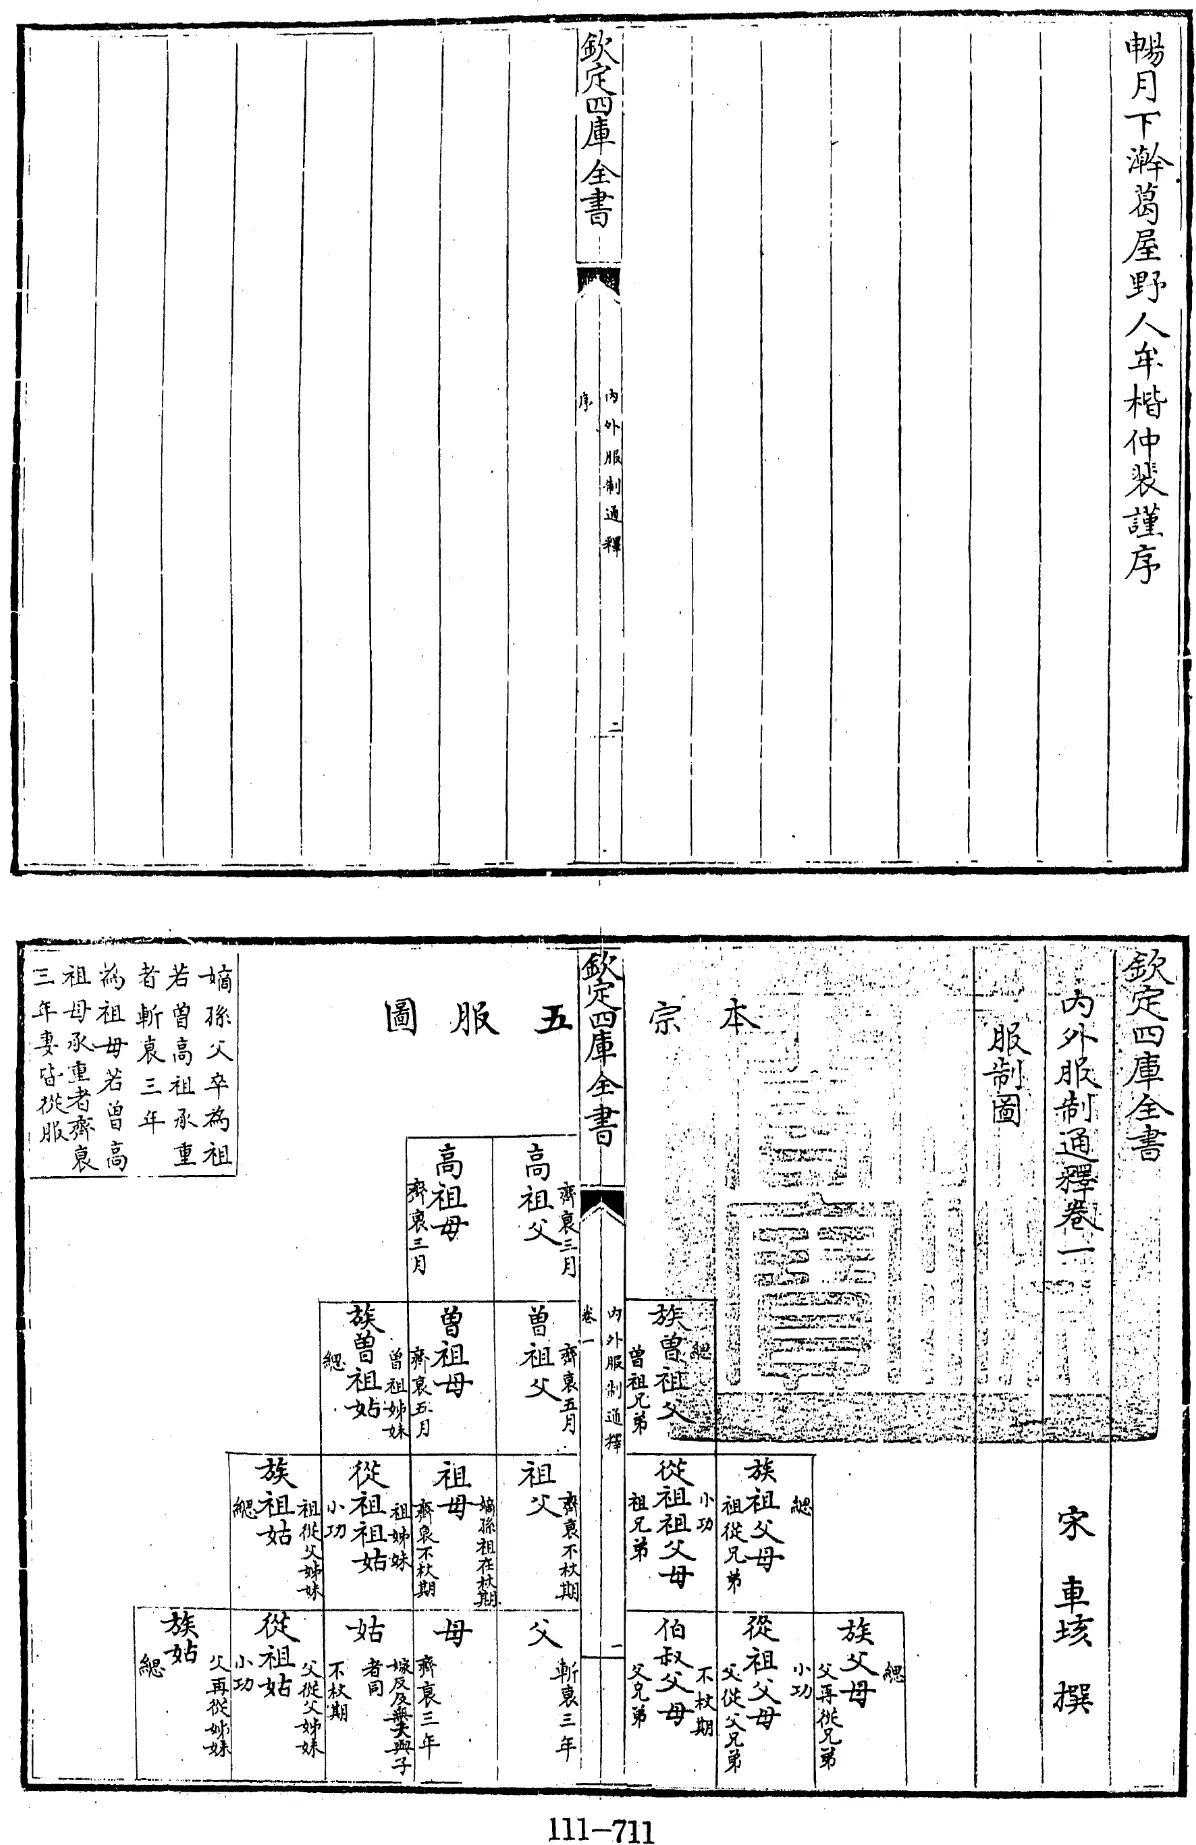 暢月下澣葛屋野人牟楷仲裴謹序
欽定四庫全書
內外服制通釋
序
二
欽定四庫全書
內外服制通釋卷一
宋 車垓 撰
服制圖
本宗五服圖
欽定四庫全書
內外服制通釋
卷一
一
族曾祖父
緦
曾祖兄弟
族祖父母
緦
祖從兄弟
從祖祖父母
小功
祖兄弟
族父母
緦
父再從兄弟
從祖父母
小功
父從父兄弟
伯叔父母
不杖期
父兄弟
高祖父
齊衰三月
高祖母
齊衰三月
曾祖父
齊衰五月
曾祖母
齊衰五月
族曾祖姑
曾祖姊妹
緦
祖父
齊衰不杖期
祖母
嫡孫祖在杖期
齊衰不杖期
從祖祖姑
祖姊妹
小功
族祖姑
祖從父姊妹
緦
父
斬衰三年
母
齊衰三年
姑
嫁反及無夫與子
者同
不杖期
從祖姑
父從父姊妹
小功
族姑
父再從姊妹
緦
嫡孫父卒為祖
若曾高祖承重
者斬衰三年
為祖母若曾高
祖母承重者齊衰
三年妻皆從服
111-711